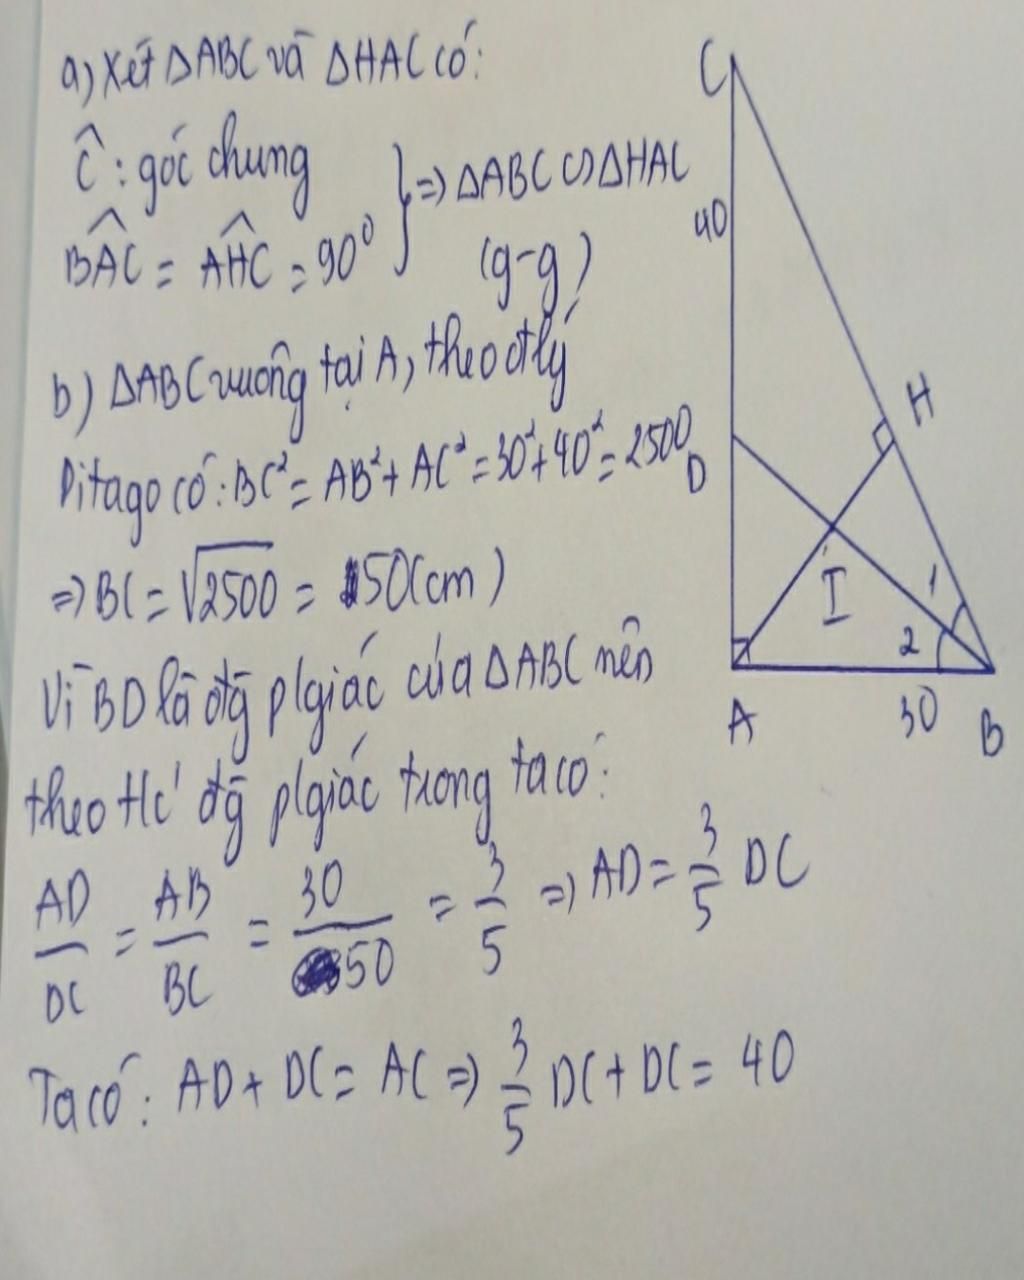 a) Xét ΔABC và ΔHAC có:
Ĉ: góc chung
BÂC = AĤC = 90⁰ } => ΔABC ∽ ΔHAC
(g-g)
b) ΔABC vuông tại A, theo đlý
Pitago có: BC² = AB² + AC² = 30² + 40² = 2500
=> BC = √2500 = 50(cm)
Vì BD là đg p/giác của ΔABC nên
theo t/c' đg p/giác trong ta có:
AD/DC = AB/BC = 30/50 = 3/5 => AD = 3/5 DC
Ta có: AD + DC = AC => 3/5 DC + DC = 40
C
40
H
D
I
1
2
A
30
B